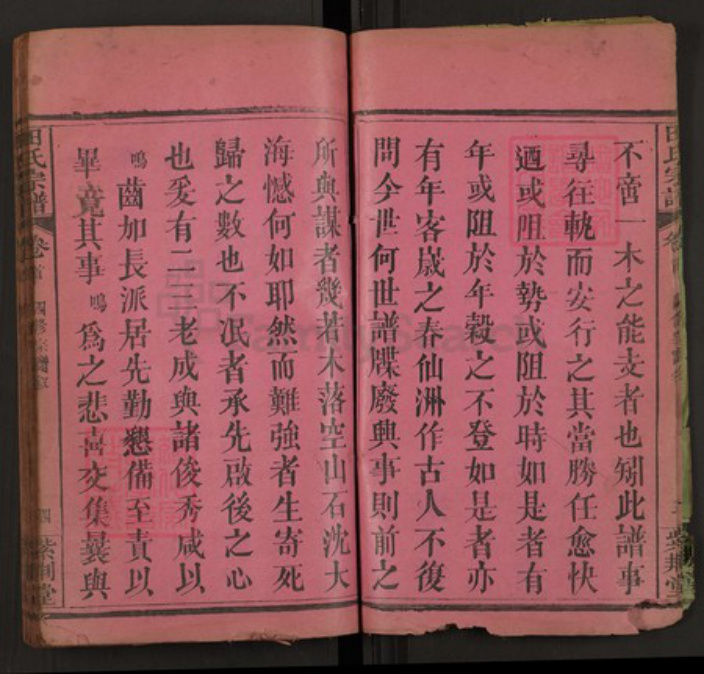 不啻一木之能支者也矧此譜事
尋往軌而安行之其當勝任愈快
迺或阻於勢或阻於時如是者有
年或阻於年穀之不登如是者亦
有年客嵗之春仙洲作古人不復
問今世何世譜牒廢興事則前之
所與謀者幾若木落空山石沈大
海憾何如耶然而難強者生寄死
歸之數也不泯者承先啟後之心
也爰有二三老成與諸俊秀咸以
鳴齒加長派居先勤懇備至責以
畢竟其事鳴為之悲喜交集曩與
田氏宗譜
卷首
四
紫荆堂
田氏宗譜
紫荆堂
FamilySearch